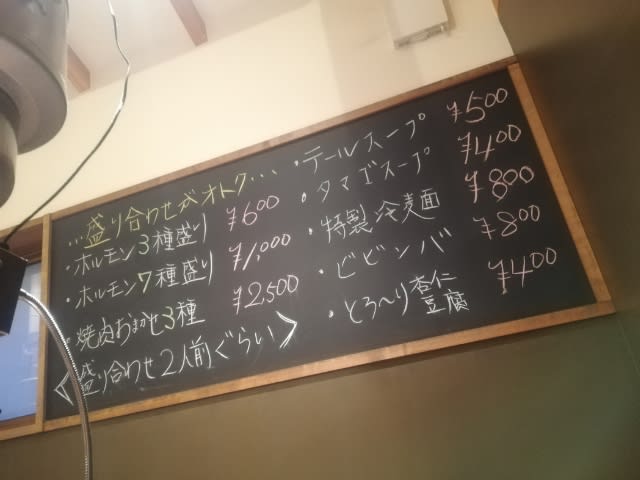 …盛り合わせがオトク…
・ホルモン3種盛り ¥600
・ホルモン7種盛り ¥1,000
・焼肉おまかせ3種 ¥2,500
《盛り合わせ2人前ぐらい》
・テールスープ ¥500
・タマゴスープ ¥400
・特製冷麺 ¥800
・ビビンバ ¥800
・とろ〜り杏仁豆腐 ¥400